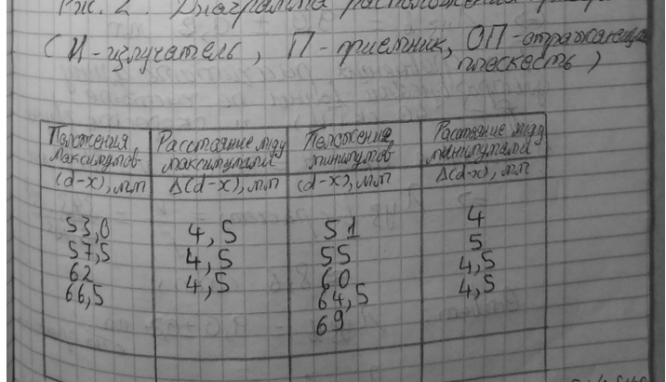 Рис. 2. Диаграмма расположения
(И-излучатель, П-приемник, ОП-отражающая
плоскость)
Положения максимумов | Расстояние между максимумами | Положения минимумов | Расстояние между минимумами
(d-x), мм | Δ(d-x), мм | (d-x), мм | Δ(d-x), мм
53,0 | 4,5 | 51 | 4
57,5 | 4,5 | 55 | 5
62 | 4,5 | 60 | 4,5
66,5 | 64,5 | 4,5
69